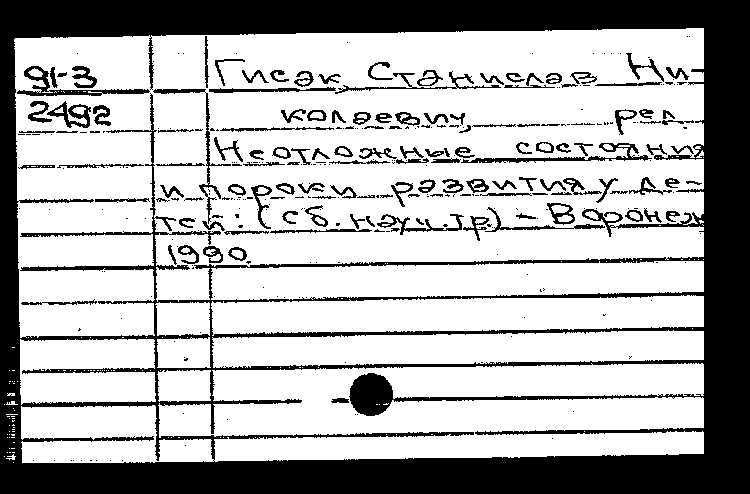 91-3 Гисак, Станислав Ни-
2492 колаевич, ред.
Неотложные состояния
и пороки развития у де-
тей: (Сб. науч. тр.) - Воронеж
1990.